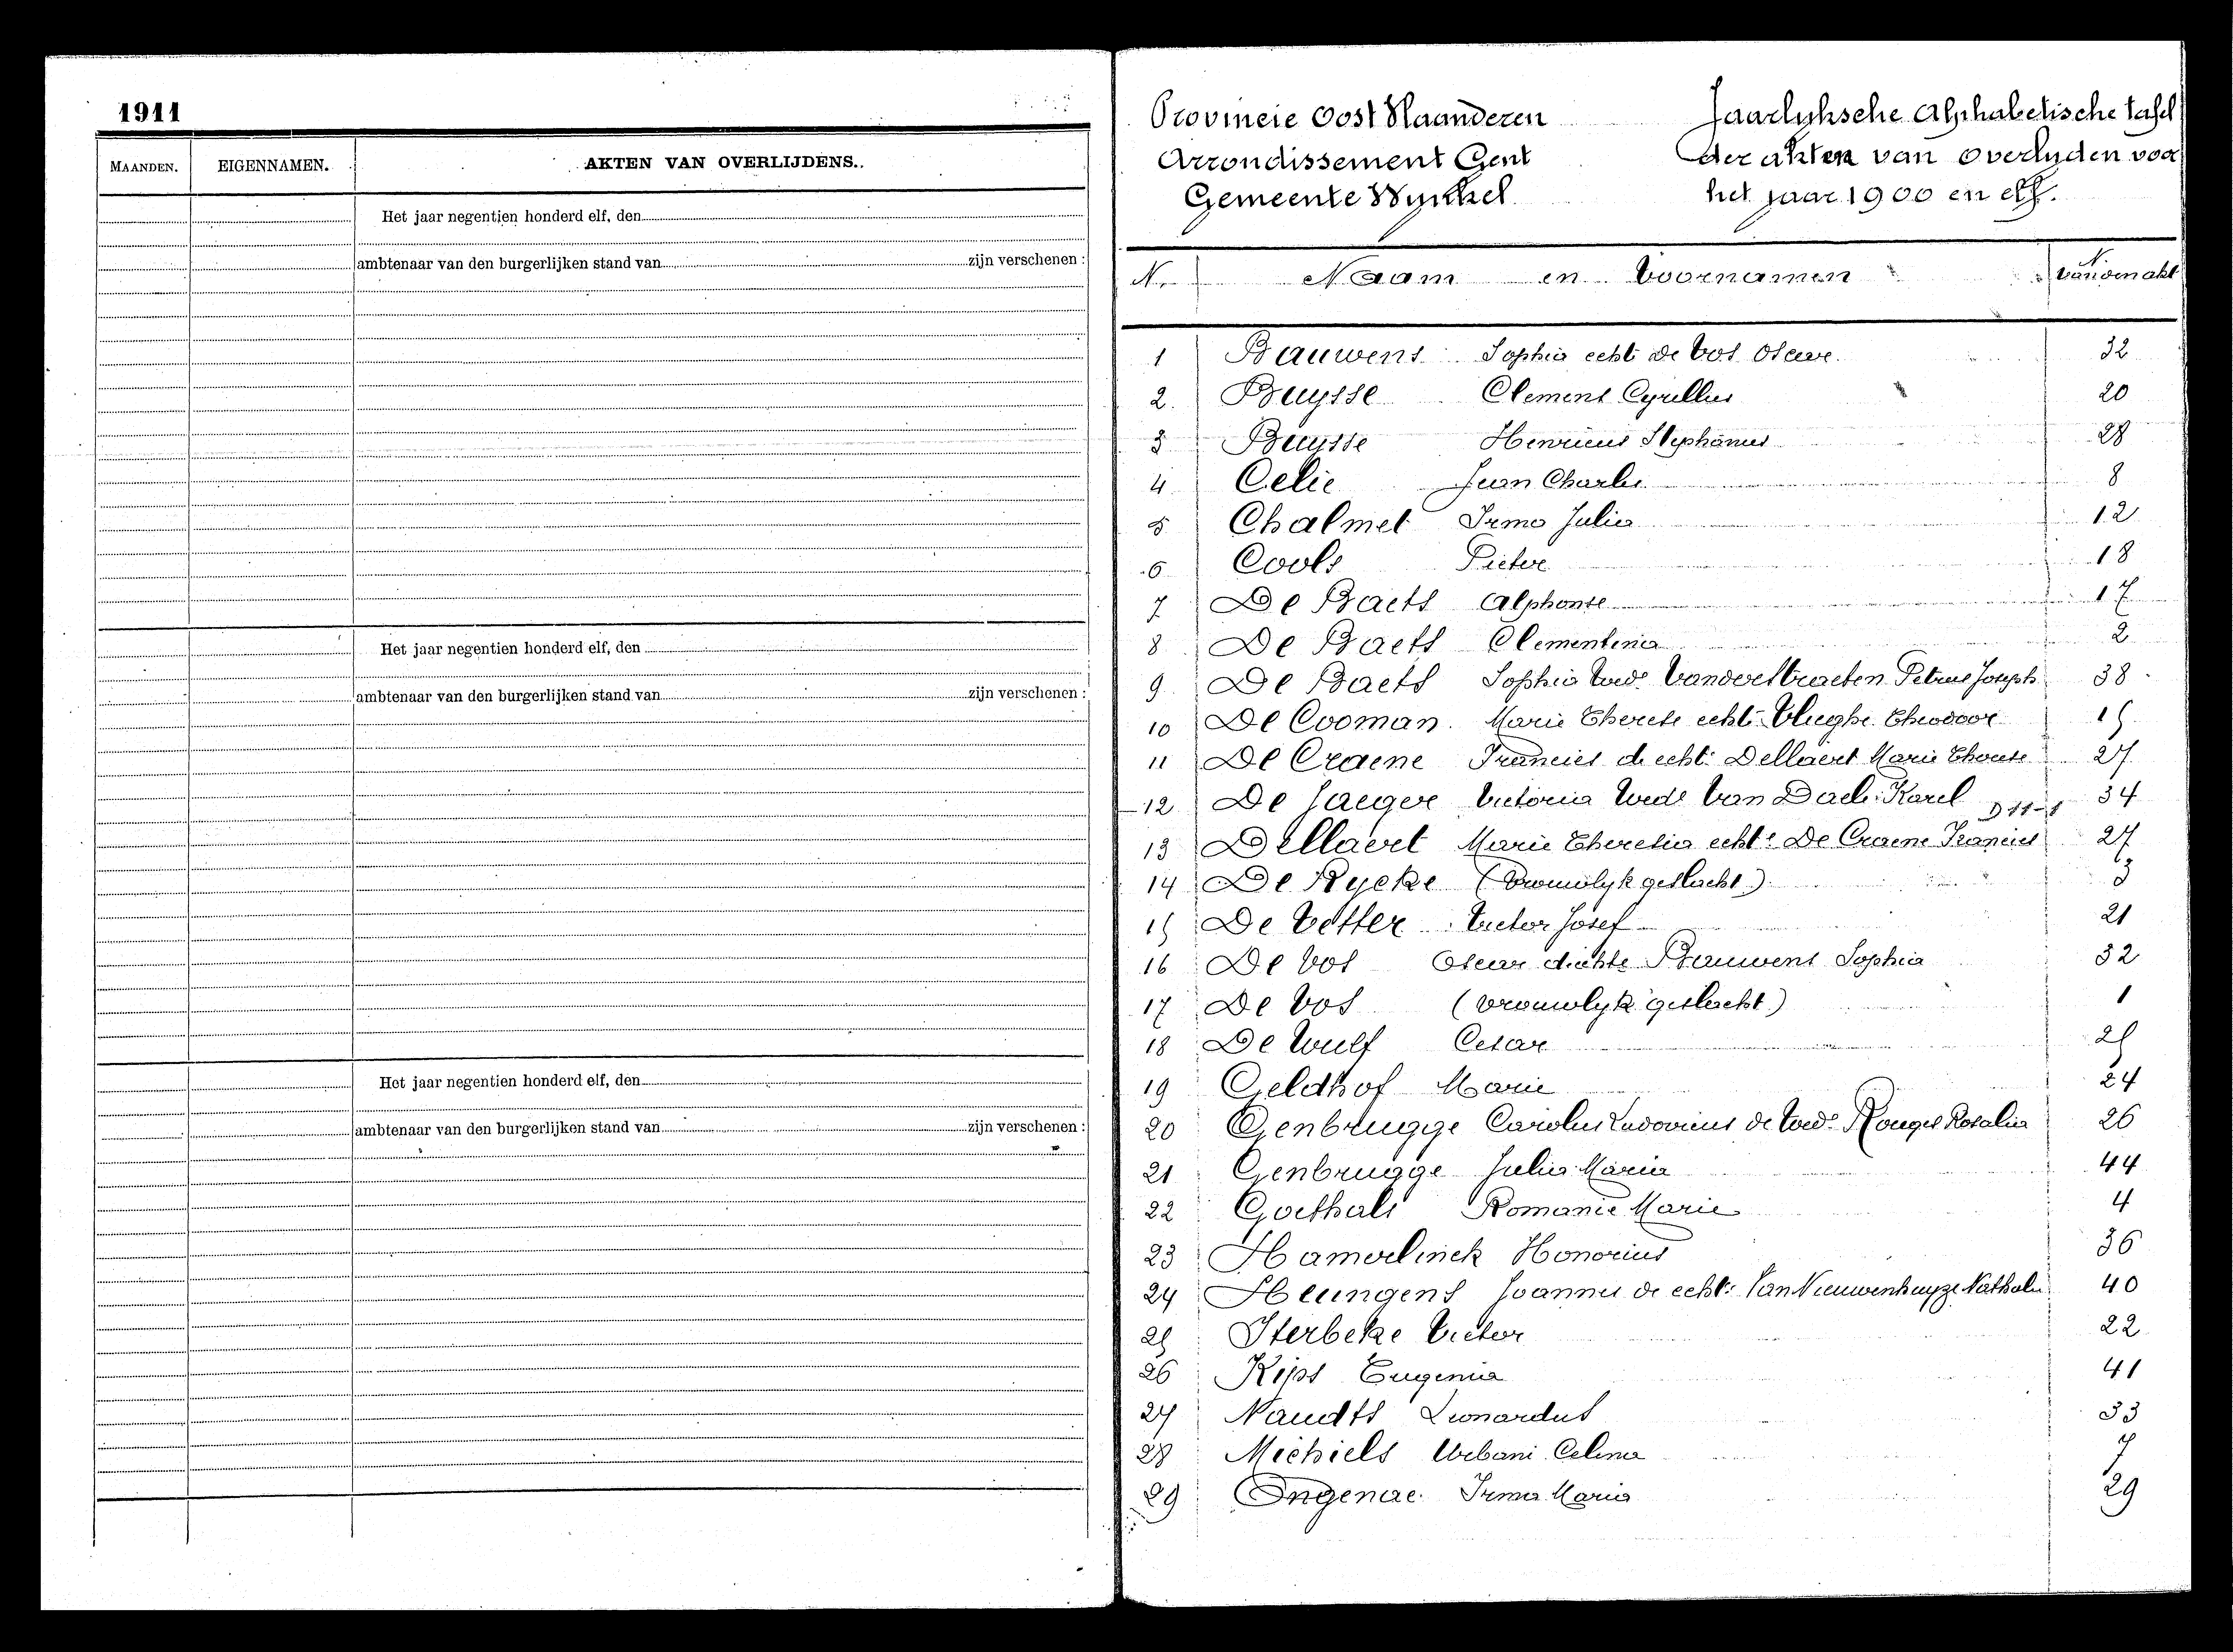 1911
MAANDEN. EIGENNAMEN. AKTEN VAN OVERLIJDENS.
Het jaar negentien honderd elf, den
ambtenaar van den burgerlijken stand van zijn verschenen :
Het jaar negentien honderd elf, den
ambtenaar van den burgerlijken stand van zijn verschenen :
Het jaar negentien honderd elf, den
ambtenaar van den burgerlijken stand van zijn verschenen :
Provincie Oost Vlaanderen
Arrondissement Gent
Gemeente Wynkel
Jaarlyksche Alphabetische tafel
der akten van overlyden voor
het jaar 1900 en elf.
N. Naam en Voornamen N
1 Bauwens Sophia echt de Vos Oscar 32
2. Buysse Clement Cyrillus 20
3 Buysse Henricus Stephanus 28
4 Celie Jean Charles 8
5 Chalmet Irma Julia 12
6 Cools Pieter 18
7 De Baets Alphonse 17
8 De Baets Clementina 2
9 De Baets Sophia Wed. Vanderstraeten Petrus Joseph 38
10 De Cooman Marie Therese echt. Vlieghe Theodoor 15
11 De Craene Francies de echt. Dellaert Marie Therese 27
12 De Jaeger Victoria Wede Van Daele Karel D 11-1 34
13 Dellaert Marie Theresia echte De Craene Francies 27
14 De Rycke (Vrouwlyk geslacht) 3
15 De Vetter Victor Josef 21
16 De Vos Oscar d'echte Bauwens Sophia 32
17 De Vos (vrouwlyk geslacht) 1
18 De Wulf Cesar 25
19 Geldhof Marie 24
20 Genbrugge Carolus Ludovicus de Wede Rosalia 26
21 Genbrugge Julia Maria 44
22 Goethals Romanie Marie 4
23 Hamerlinck Honorius 36
24 Heungens Joannes de echt. Van Nieuwenhuyze Nathalie 40
25 Sterbeke Victor 22
26 Kips Eugenia 41
27 Naudts Leonardus 33
28 Michiels Urbani Celina 7
29 Ongenae Irma Maria 29